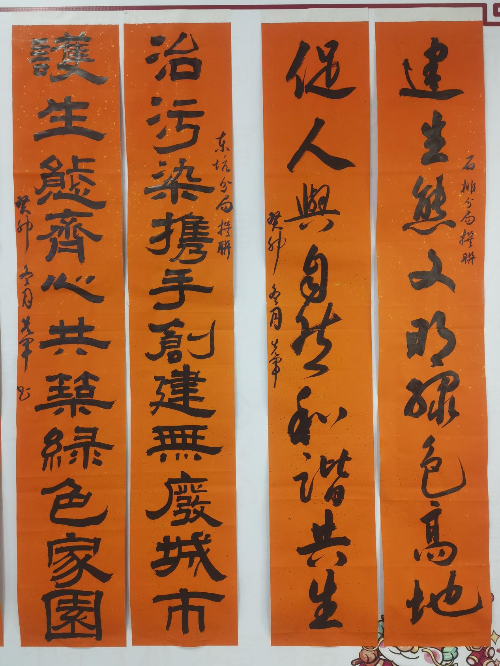 建生態文明绿色高地
石排分局撰聯
促人與自然和諧共生
癸卯冬月
治污染携手創建無廢城市
东坑分局撰聯
護生態齊心共築緑色家園
癸卯冬月